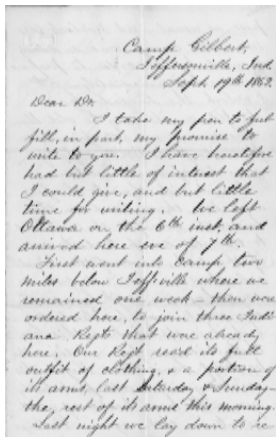 Camp Gilbert,
Jeffersonville, Ind.
Sept. 19th 1862.
Dear Dr.
I take my pen to ful
fill, in part, my promise to
write to you. I have heretofore
had but little of interest that
I could give, and but little
time for writing. We left
Ottawa on the 6th inst, and
arrived here eve of 7th.
First went into Camp two
miles below Jeffville where we
remained one week - then were
ordered here, to join three Indi
ana Regts that were already
here. Our Regt recd its full
outfit of clothing, & a portion of
its arms, last Saturday & Sunday -
the rest of its arms this morning.
Last night we lay down to re